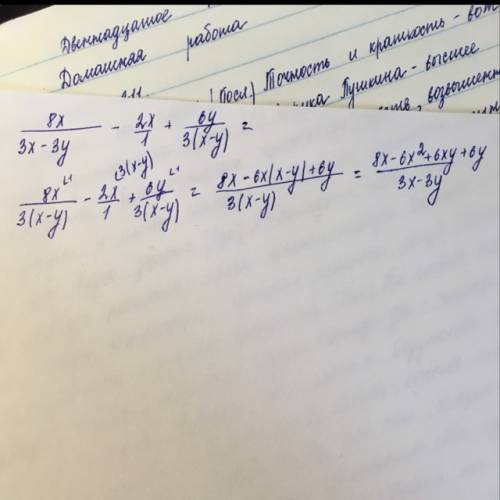 Двенадцатое
Домашняя работа
(Посл.) Точность и краткость - вот
Пушкина - высшее
возвышен
8x/(3x-3y) - 2x/1 + 6y/(3(x-y)) =
8x^{1}/(3(x-y)) - 2x^{3(x-y)}/1 + 6y^{1}/(3(x-y)) = (8x-6x(x-y)+6y)/(3(x-y)) = (8x-6x²+6xy+6y)/(3x-3y)